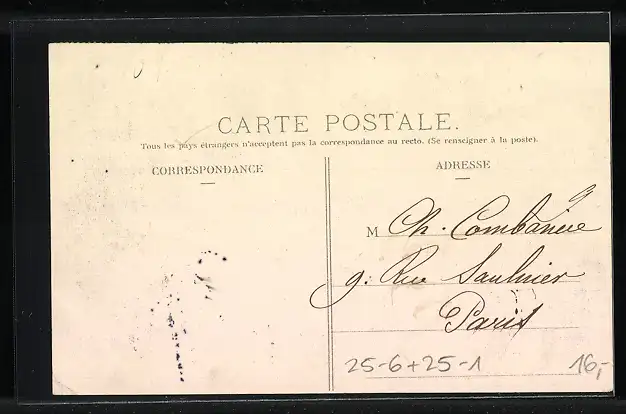 CARTE POSTALE.
Tous les pays étrangers n'acceptent pas la correspondance au recto. (Se renseigner à la poste).
CORRESPONDANCE
ADRESSE
M Ch. Combanère
9. Rue Saulnier
Paris
25-6+25-1
16,-